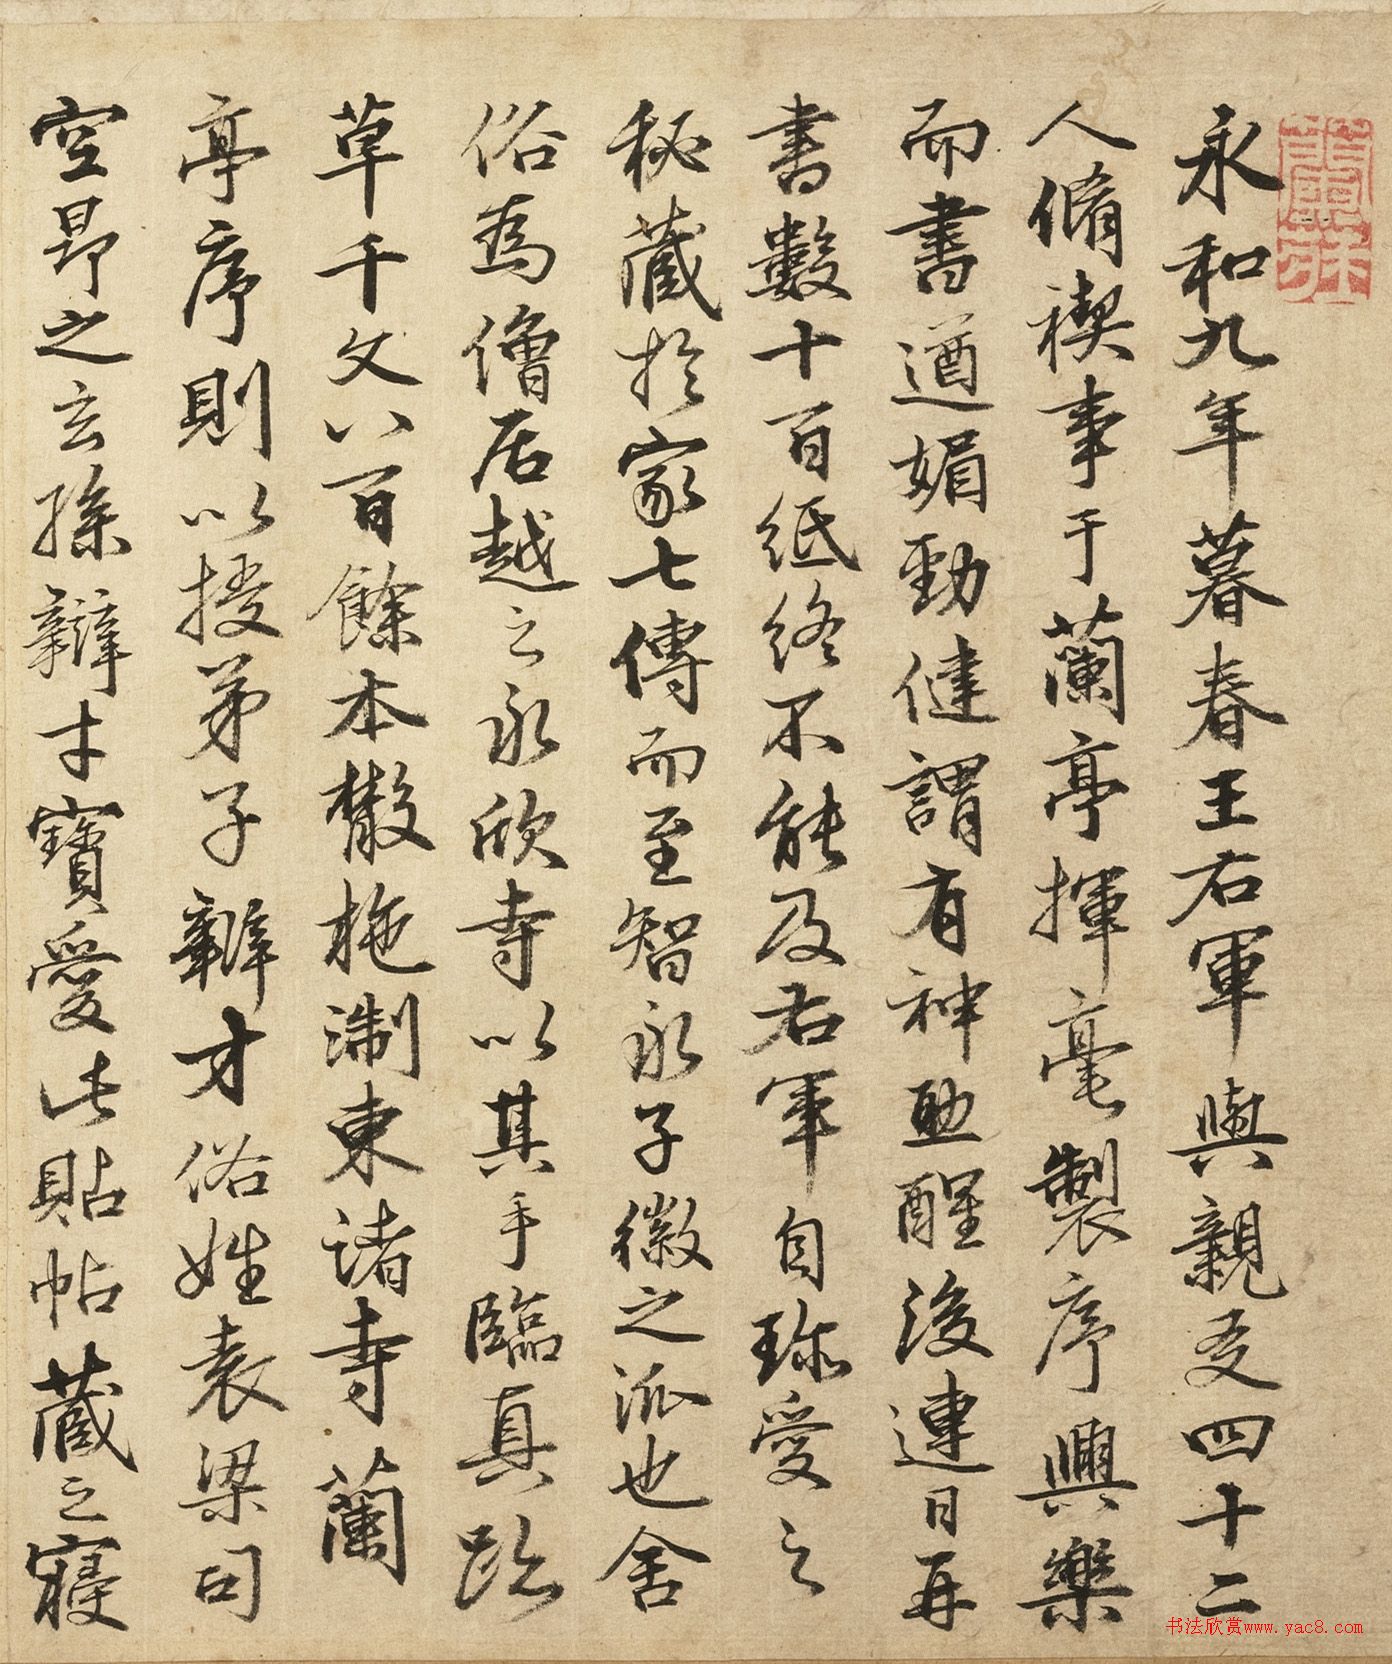 永和九年暮春王右軍與親友四十二
人脩禊事于蘭亭揮毫製序興樂
而書遒媚勁健謂有神助醒後連日再
書數十百紙終不能及右軍自珎愛之
秘藏於家七傳而至智永子徽之派也舍
俗為僧居越之永欣寺以其手臨真
草千文八百餘本散施淛東诸寺蘭
亭序則以授弟子辯才俗姓袁梁司
空昂之玄孫辯才寶愛此貼帖藏之寢
书法欣赏www.yac8.com